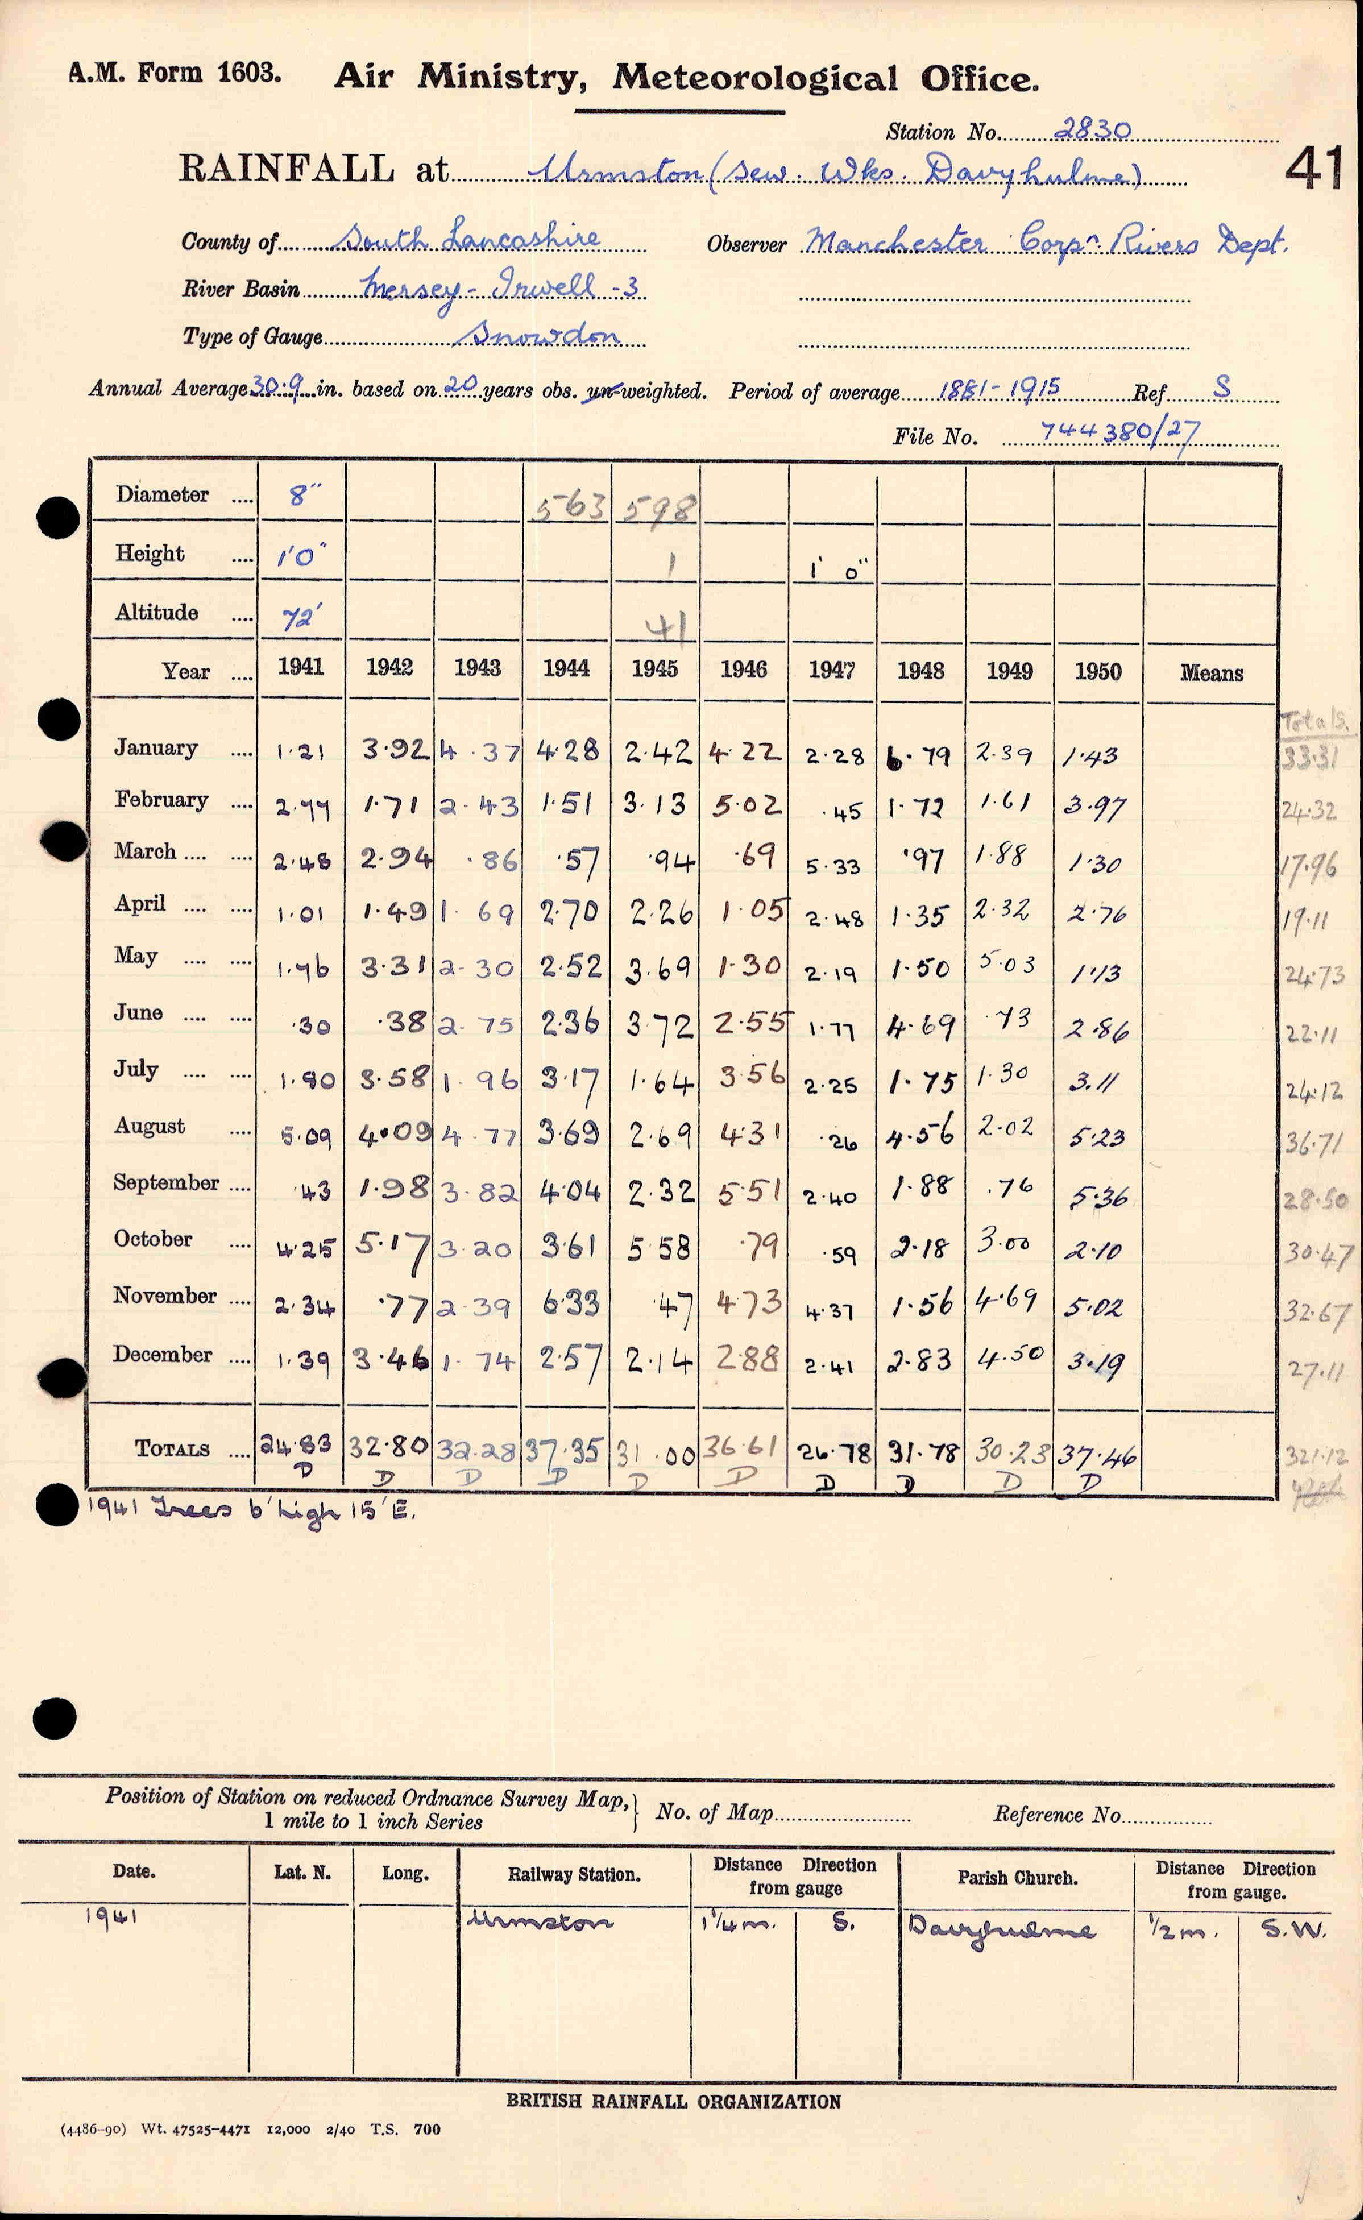 A.M. Form 1603. Air Ministry, Meteorological Office.
Station No. 2830
RAINFALL at Urmston (Sew. Wks. Davyhulme) 41
County of South Lancashire Observer Manchester Corpn. Rivers Dept.
River Basin Mersey - Irwell - 3
Type of Gauge Snowdon
Annual Average 30.9 in. based on 20 years obs. un-weighted. Period of average 1881-1915 Ref S
File No. 744380/27
Diameter .... 8" 563 598
Height .... 1'0" 1 1' 0"
Altitude .... 72' 41
Year .... 1941 1942 1943 1944 1945 1946 1947 1948 1949 1950 Means
Totals.
January .... 1.21 3.92 4.37 4.28 2.42 4.22 2.28 6.79 2.39 1.43 33.31
February .... 2.77 1.71 2.43 1.51 3.13 5.02 .45 1.72 1.61 3.97 24.32
March .... .... 2.48 2.94 .86 .57 .94 .69 5.33 .97 1.88 1.30 17.96
April .... .... 1.01 1.49 1.69 2.70 2.26 1.05 2.48 1.35 2.32 2.76 19.11
May .... .... 1.76 3.31 2.30 2.52 3.69 1.30 2.19 1.50 5.03 1.13 24.73
June .... .... .30 .38 2.75 2.36 3.72 2.55 1.77 4.69 .73 2.86 22.11
July .... .... 1.80 3.58 1.96 3.17 1.64 3.56 2.25 1.75 1.30 3.11 24.12
August .... 5.09 4.09 4.77 3.69 2.69 4.31 .26 4.56 2.02 5.23 36.71
September .... .43 1.98 3.82 4.04 2.32 5.51 2.40 1.88 .76 5.36 28.50
October .... 4.25 5.17 3.20 3.61 5.58 .79 .59 2.18 3.00 2.10 30.47
November .... 2.34 .77 2.39 6.33 .47 4.73 4.37 1.56 4.69 5.02 32.67
December .... 1.39 3.46 1.74 2.57 2.14 2.88 2.41 2.83 4.50 3.19 27.11
TOTALS .... 24.83 32.80 32.28 37.35 31.00 36.61 26.78 31.78 30.23 37.46 321.12
D D D D D D D D D D
1941 Trees 6' high 15' E.
Position of Station on reduced Ordnance Survey Map, 1 mile to 1 inch Series } No. of Map Reference No.
Date. Lat. N. Long. Railway Station. Distance Direction from gauge Parish Church. Distance Direction from gauge.
1941 Urmston 1¼m. S. Davyhulme ½m. S.W.
BRITISH RAINFALL ORGANIZATION
(4486-90) Wt. 47525-4471 12,000 2/40 T.S. 700